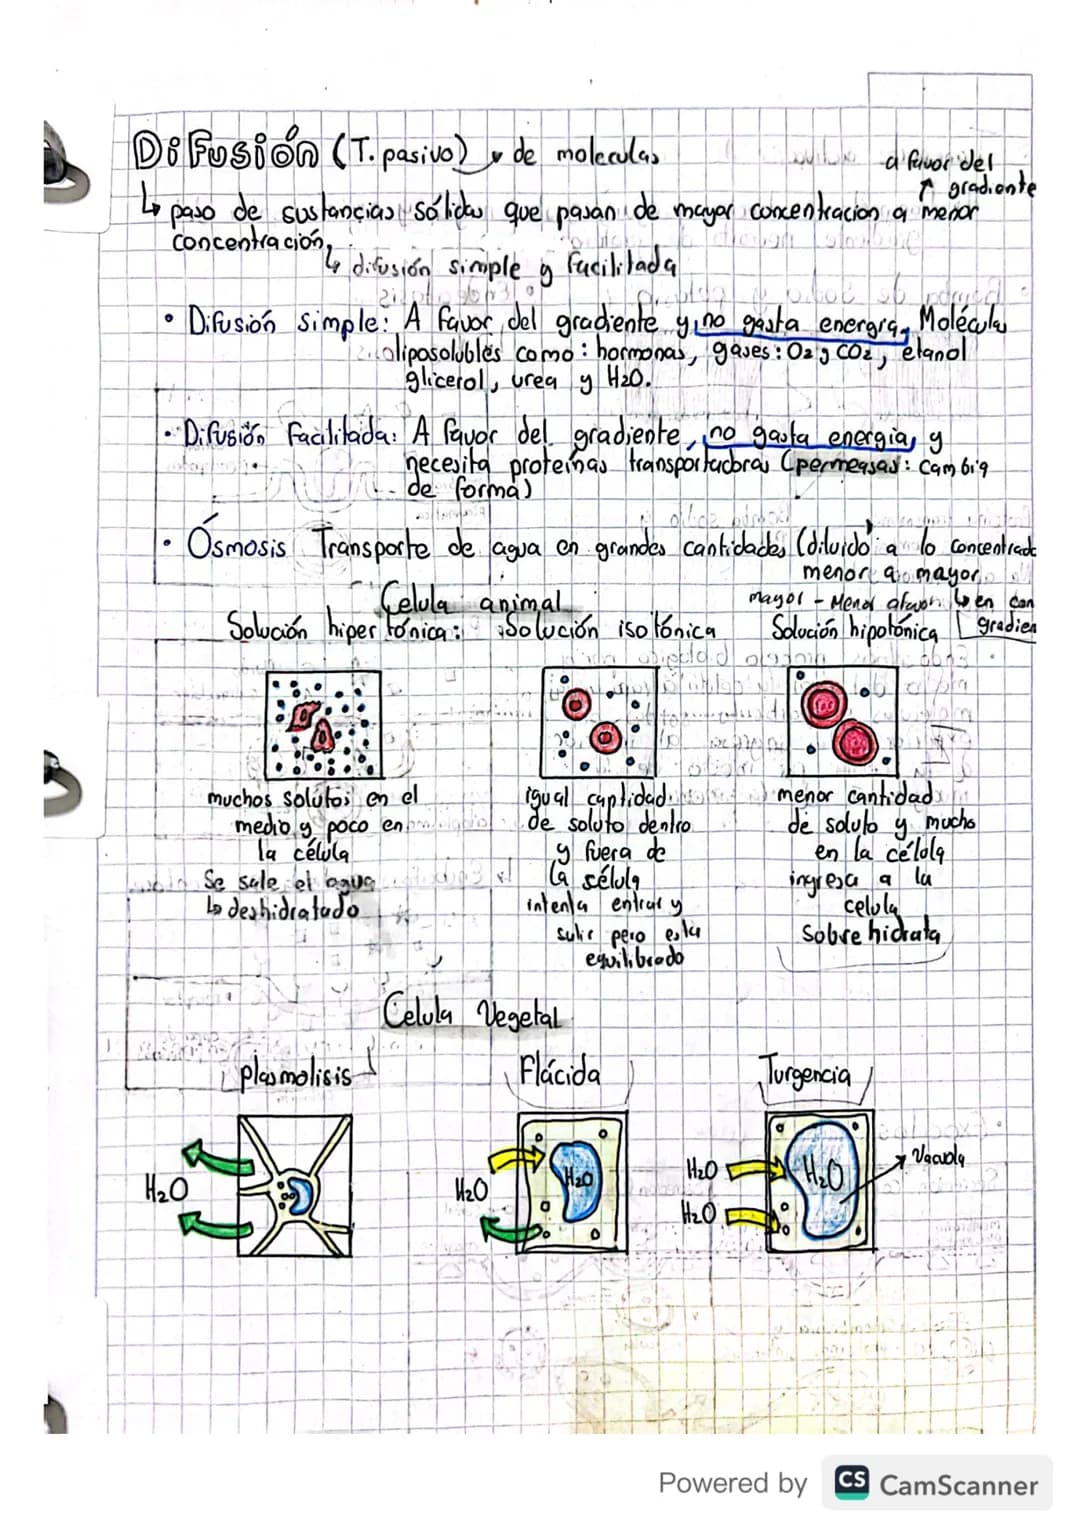 Difusión (T. pasivo) de moleculas
a favor del
gradiente
↳ paso de sustancias sólidas que pasan de mayor concentracion a menor
concentración,
↳ difusión simple y facilitada
• Difusión simple: A favor del gradiente y no gasta energía, Moléculas
liposolubles como: hormonas, gases: O2 y CO2, etanol
glicerol, urea y H2O.
• Difusión Facilitada: A favor del gradiente, no gasta energía, y
necesita proteínas transportadoras (permeasas: cambia
de forma)
• Ósmosis Transporte de agua en grandes cantidades (diluido a lo concentrado
menor a mayor
Celula animal
mayor - Menor afavor ↳ en con
gradien
Solución hipertónica: Solución isotónica Solución hipotónica
muchos solutos en el
medio y poco en
la célula
Se sale el agua
↳ deshidratado
igual cantidad
de soluto dentro
y fuera de
la sélula
intenta entrar y
salir pero esta
equilibrado
menor cantidad
de soluto y mucho
en la célula
ingresa a la
celula
Sobre hidrata
Celula Vegetal
plasmolisis Flácida Turgencia
H2O
H2O
H2O
H2O
H2O
H2O
Vacuola
Powered by CS CamScanner